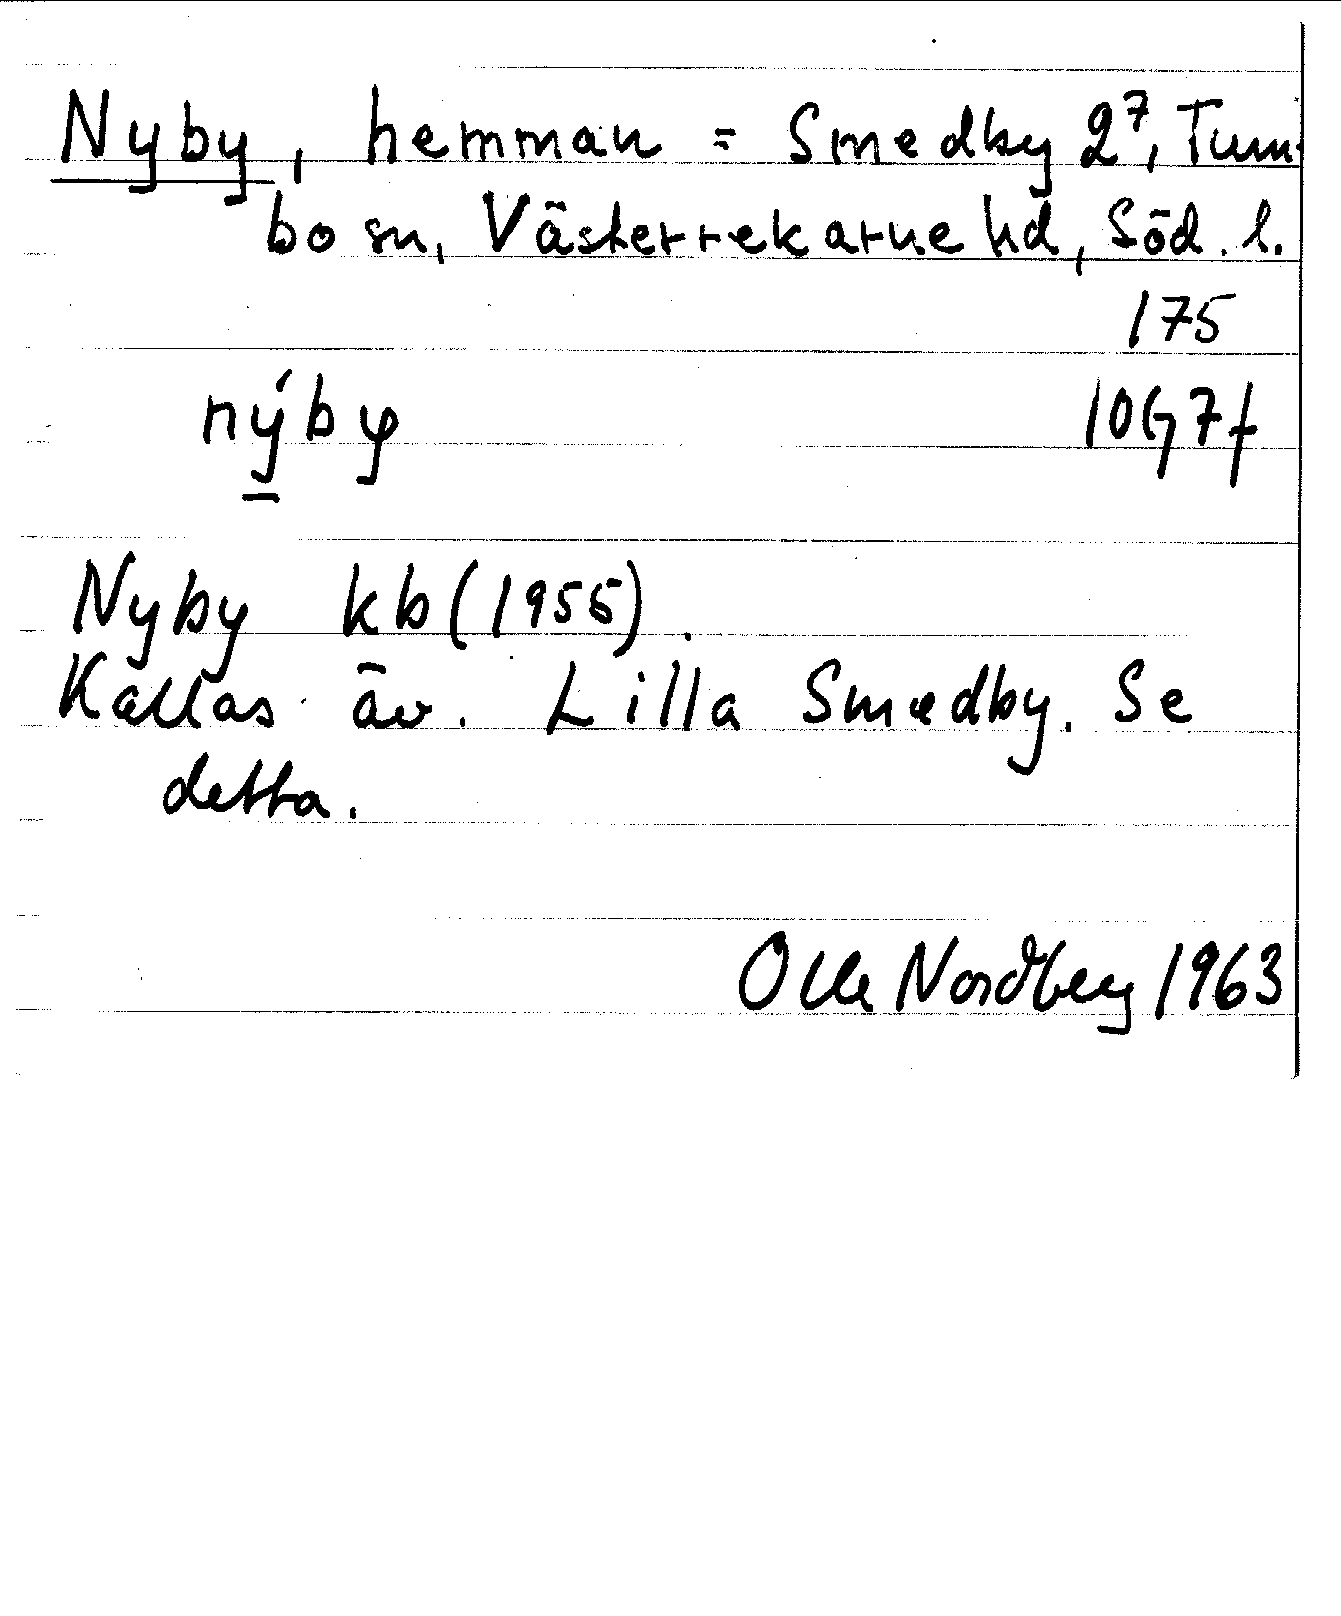 Nyby, hemman = Smedby 2⁷, Tum-
bo sn, Västerrekarne hd, Söd. l.
175
nýby
10G7f
Nyby kb (1955).
Kallas äv. Lilla Smedby. Se
detta.
Olle Nordberg 1963